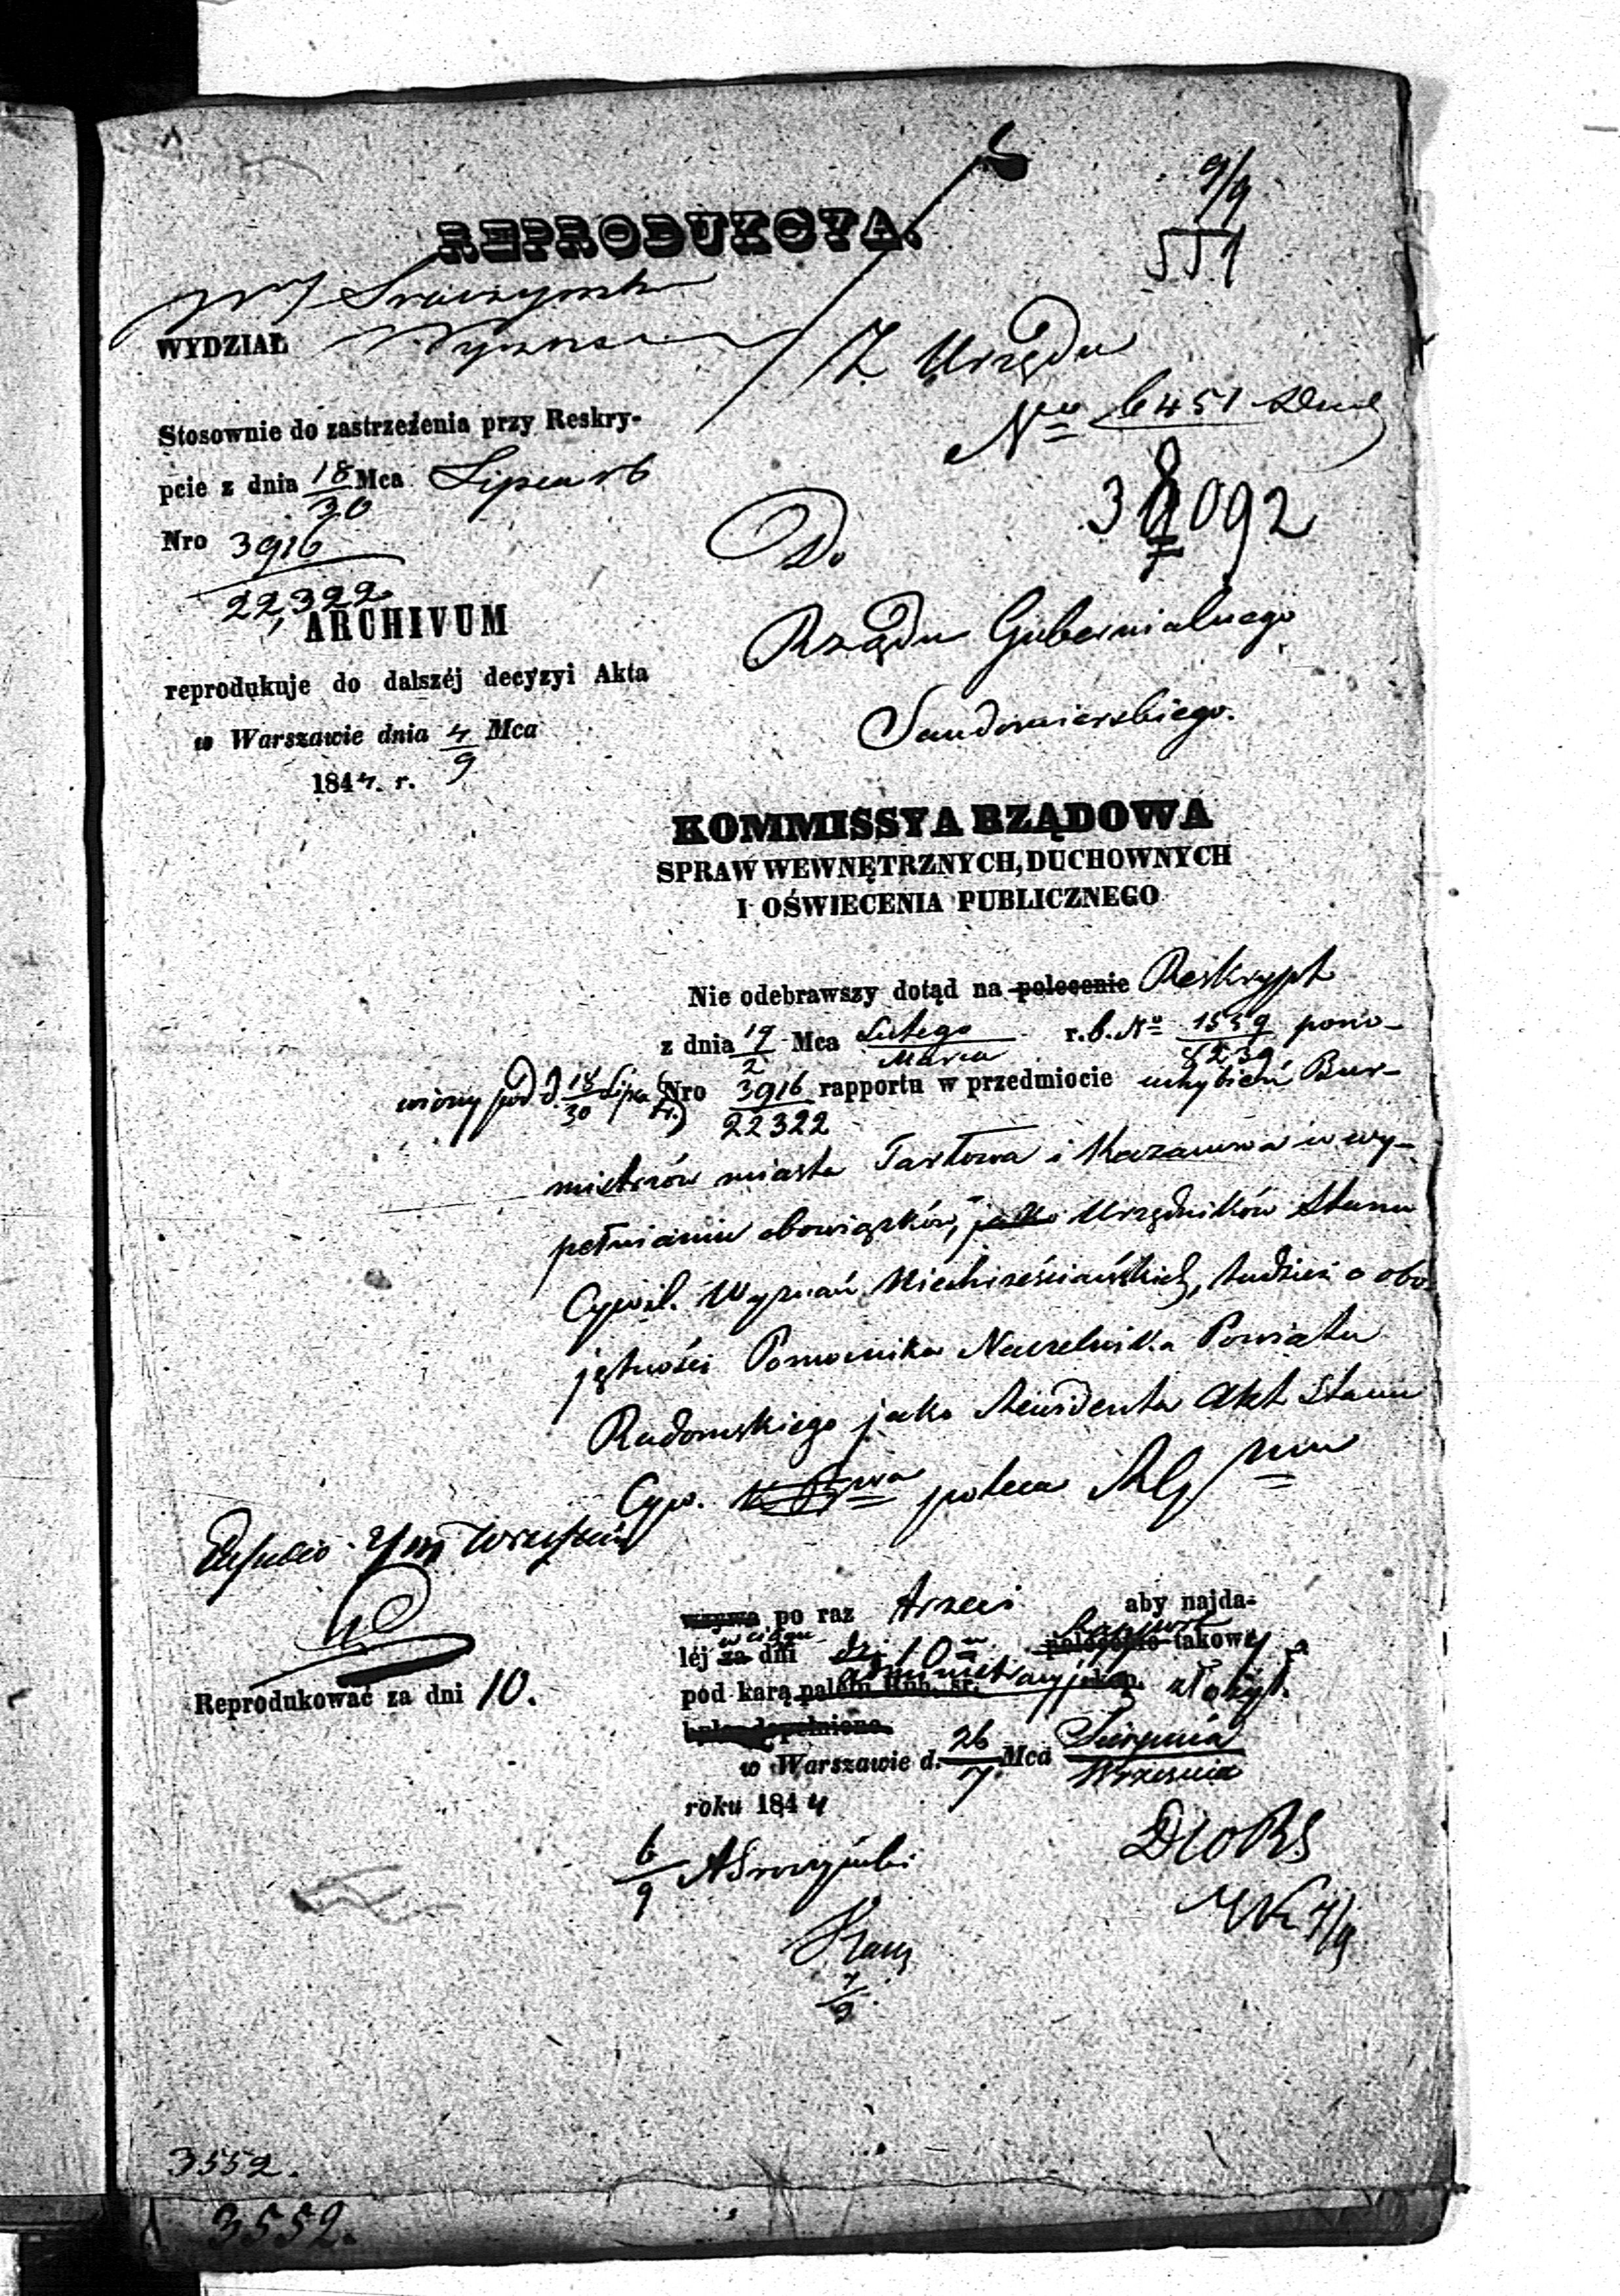 9/9
551
REPRODUKCYA.
WYDZIAŁ
Z Urzędu
Stosownie do zastrzeżenia przy Reskry-
pcie z dnia 18/30 Mca Lipca rb
Nro 3916
22,322
ARCHIVUM
reprodukuje do dalszéj decyzyi Akta
w Warszawie dnia 4/9 Mca
1844. r.
No 6451
092
Do
Rządu Gubernialnego
Sandomierskiego.
KOMMISSYA RZĄDOWA
SPRAW WEWNĘTRZNYCH, DUCHOWNYCH
I OŚWIECENIA PUBLICZNEGO
Nie odebrawszy dotąd na polecenie Reskrypt
z dnia 19/2 Mca Lutego/Marca r. b. No 1559/8239 pono-
wiony pod d. 18/30 Lipca Nro 3916/22322 rapportu w przedmiocie uchybień Bur-
mistrzów miasta Tarłowa i Kazanowa w wy-
pełnianiu obowiązków, jako Urzędników Stanu
Cywil. Wyznań Niechrześciańskich, tudzież o obo-
jętności Pomocnika Naczelnika Powiatu
Radomskiego jako Rewidenta Akt Stanu
Cyw. poleca
wzywa po raz trzeci aby najda-
léj za w ciągu dni 10 polecenie Rapport takowy
pod karą palem Rub. sr. kop. złożył.
było dopełnione.
w Warszawie d. 26/7 Mca Sierpnia/Września
roku 1844
Września
Reprodukować za dni 10.
6/9
DWORS
7/9
7/9
3552.
3552.